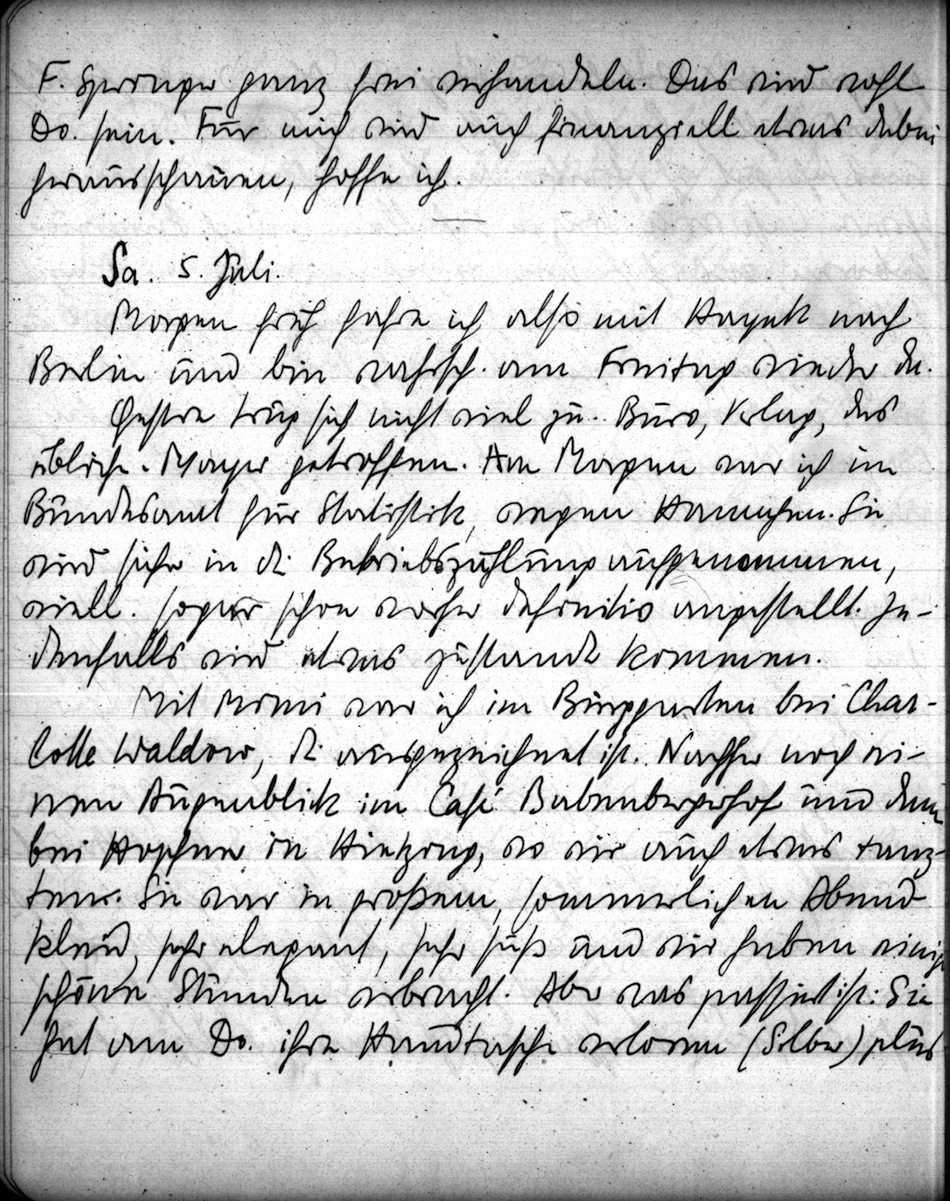 F. Springer ganz frei verhandeln. Das wird wohl
Do. sein. Für mich wird auch finanziell etwas dabei
herausschauen, hoffe ich.
Sa. 5. Juli.
Morgen früh fahre ich also mit Hayek nach
Berlin und bin wahrsch. am Freitag wieder da.
Gestern trug sich nicht viel zu. Büro, Verlag, das
übliche. Mayer getroffen. Am Morgen war ich im
Bundesamt für Statistik, wegen Hannchen. Sie
wird sicher in die Betriebszählung aufgenommen,
viell. sogar schon vorher definitiv angestellt. Je-
denfalls wird etwas zustande kommen.
Mit Mimi war ich im Burggarten bei Char-
lotte Waldow, die ausgezeichnet ist. Nachher noch ei-
nen Augenblick im Café Babenbergerhof und dann
bei Hopfner in Hietzing, wo wir auch etwas tanz-
ten. Sie war in großem, sommerlichen Abend-
kleid, sehr elegant, sehr süß und wir haben einige
schöne Stunden verbracht. Aber was passiert ist: Sie
hat am Do. ihre Handtasche verloren (Silber) plus